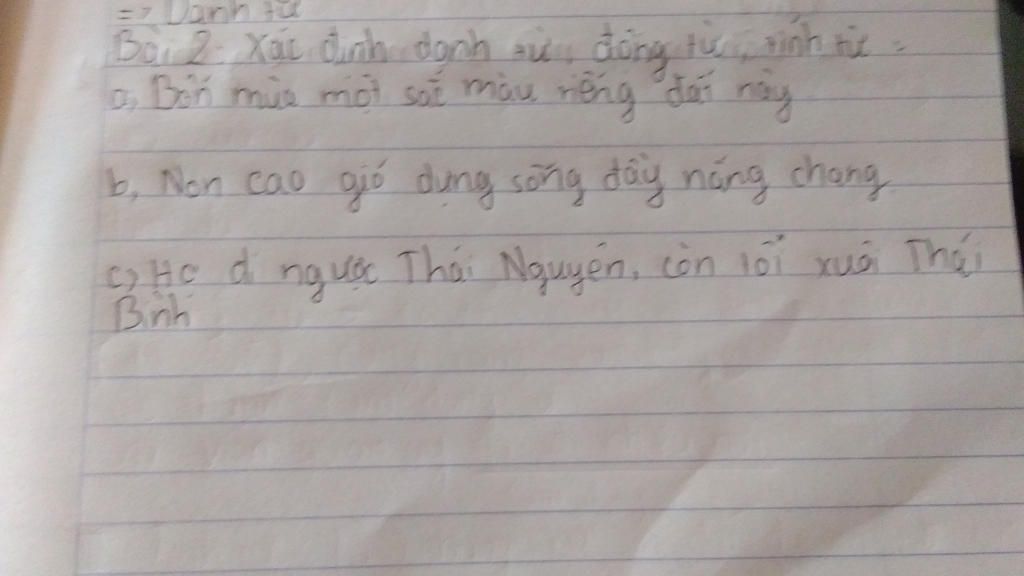 => Danh từ
Bài 2: Xác định danh từ, động từ, tính từ:
a, Bốn mùa một sắc màu riêng đất này
b, Non cao gió dựng sông đầy nắng chang
c, Họ đi ngược Thái Nguyên, còn tôi xuôi Thái
Bình